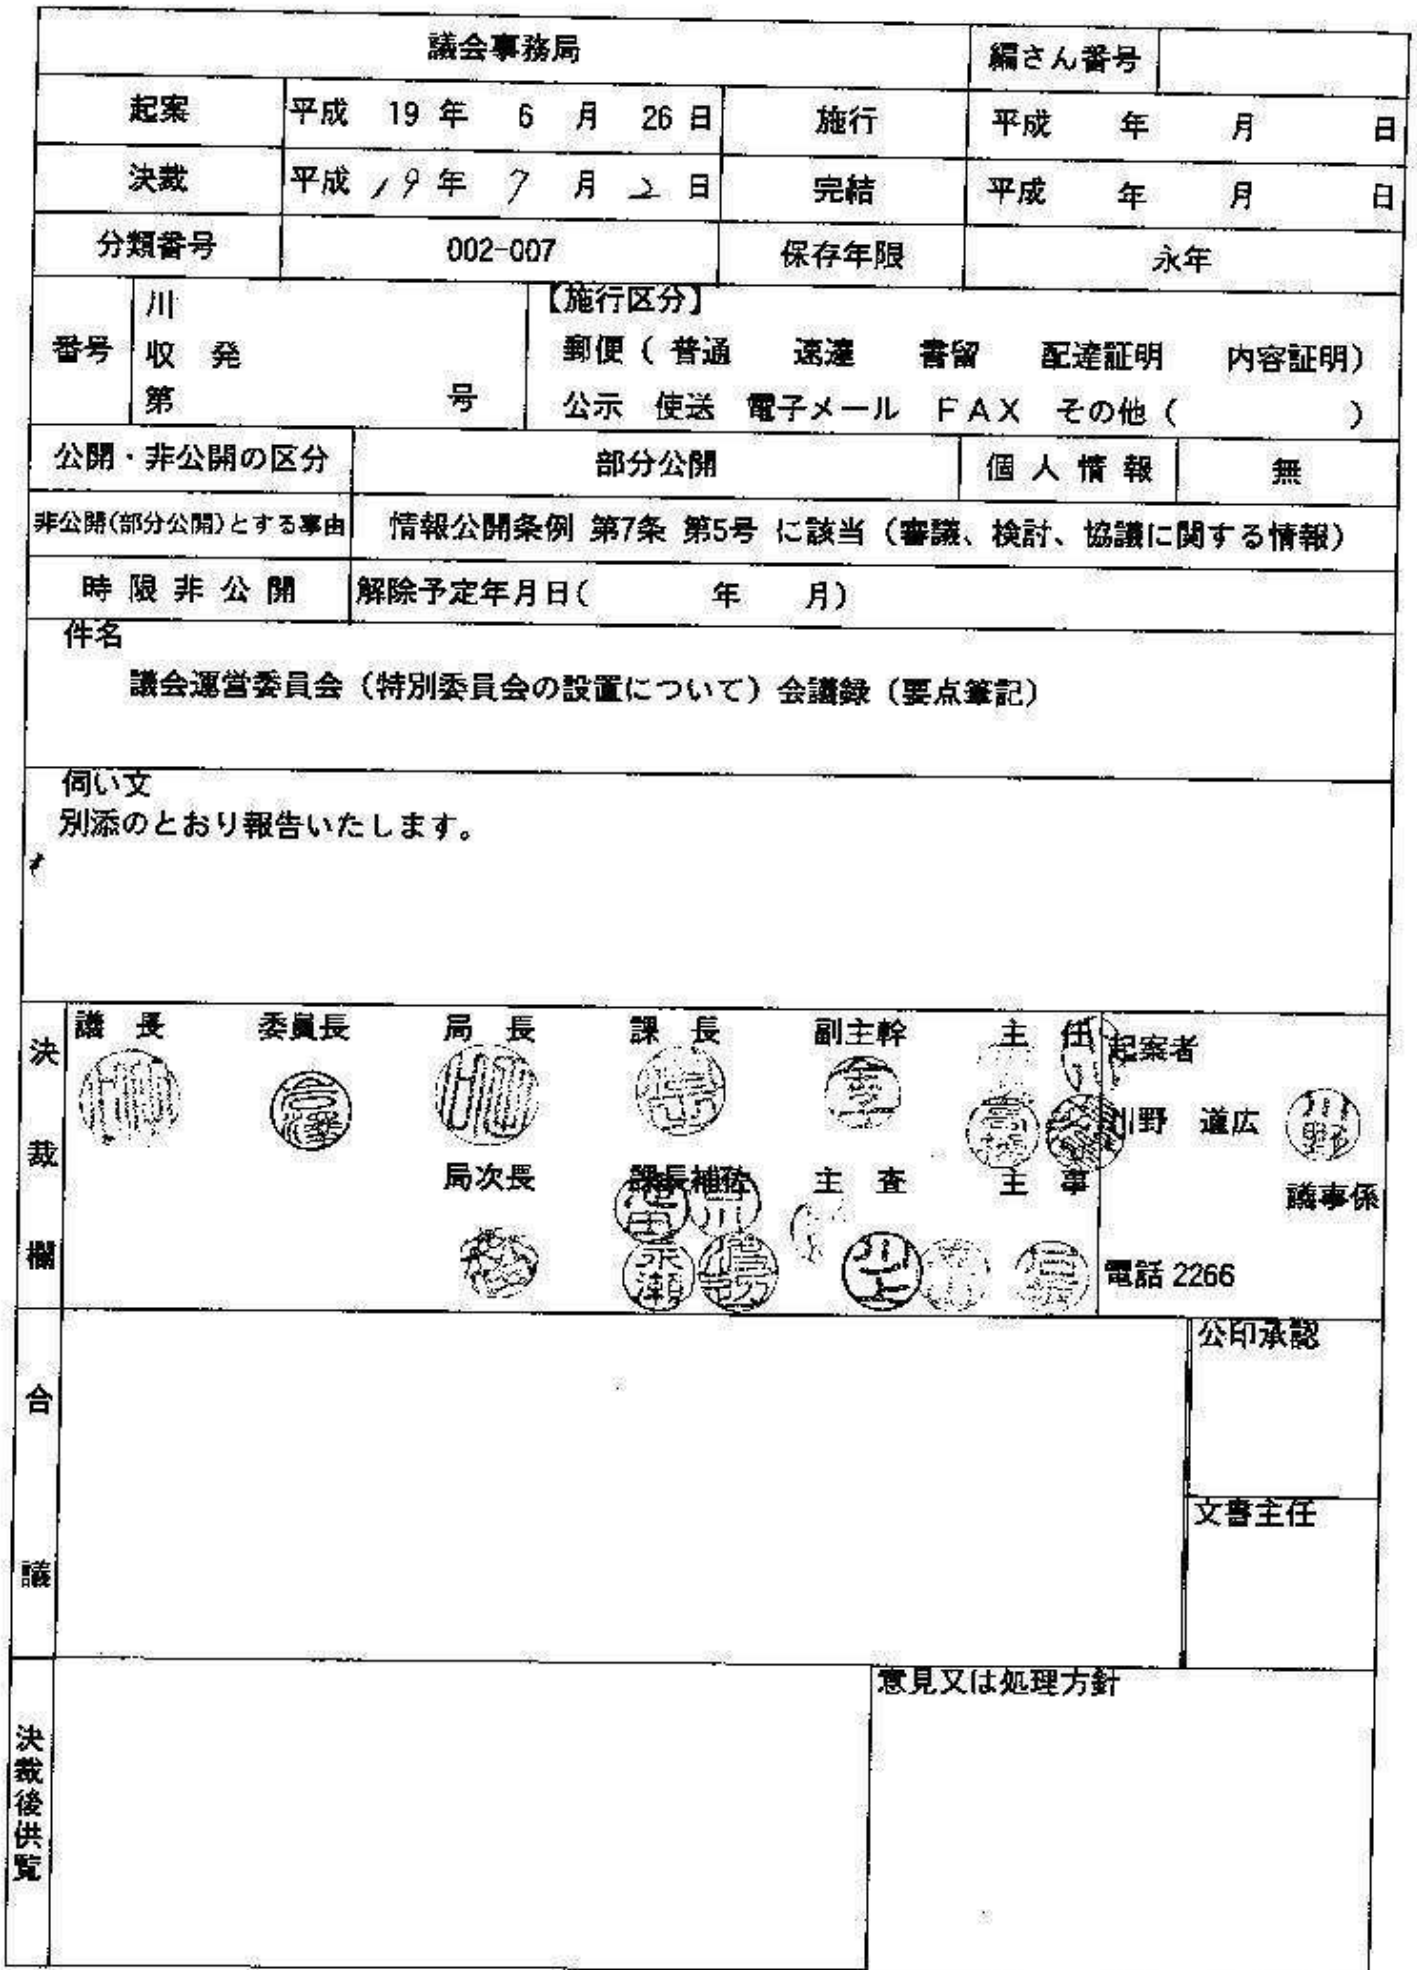 議会事務局 編さん番号
起案 平成 19 年 6 月 26 日 施行 平成 年 月 日
決裁 平成 19 年 7 月 2 日 完結 平成 年 月 日
分類番号 002-007 保存年限 永年
番号
川
収 発
第 号
【施行区分】
郵便（ 普通 速達 書留 配達証明 内容証明）
公示 使送 電子メール ＦＡＸ その他（ ）
公開・非公開の区分 部分公開 個人情報 無
非公開(部分公開)とする事由 情報公開条例 第7条 第5号 に該当（審議、検討、協議に関する情報）
時限非公開 解除予定年月日( 年 月)
件名
議会運営委員会（特別委員会の設置について）会議録（要点筆記）
伺い文
別添のとおり報告いたします。
決裁欄
議長 委員長 局長 課長 副主幹 主任
起案者
川野 道広 川野
局次長 課長補佐 主査 主事
議事係
高橋
川上
電話 2266
合議
公印承認
文書主任
決裁後供覧
意見又は処理方針